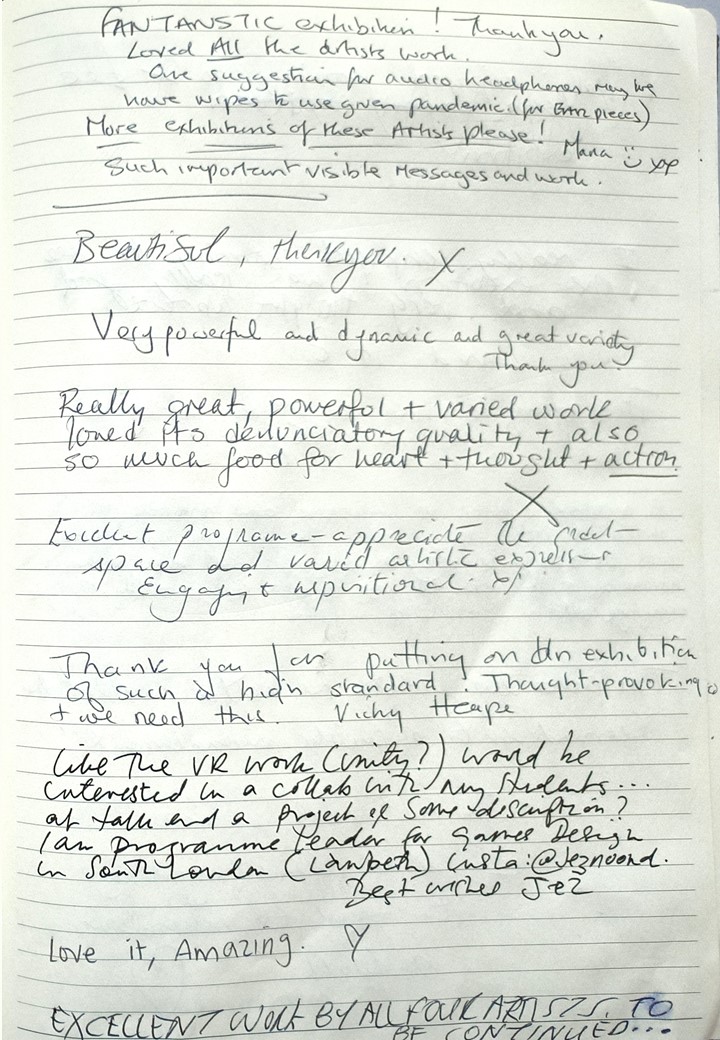 FANTANSTIC exhibition! Thank you.
Loved All the Artists work.
One suggestion for audio headphones may be
have wipes to use given pandemic! (for pieces)
More exhibitions of these Artists please! Maria xx
Such important visible Messages and work.
Beautiful, thank you. X
Very powerful and dynamic and great variety
Thank you!
Really great, powerful + varied work
loved its denunciatory quality + also
so much food for heart + thought + action
X
Excellent programe - appreciate the
space and varied artistic expression
Engaging +
Thank you for putting on an exhibition
of such a high standard. Thought-provoking
+ we need this. Vichy Heape
Like The VR work (Unity?) would be
interested in a collab with my students...
at talk and a project of some discription?
I am programme leader for Games Design
in South London (Lambeth) insta: @Jeznoond.
Best wishes Jez
Love it, Amazing.
EXCELLENT WORK BY ALL FOUR ARTISTS. TO
BE CONTINUED...